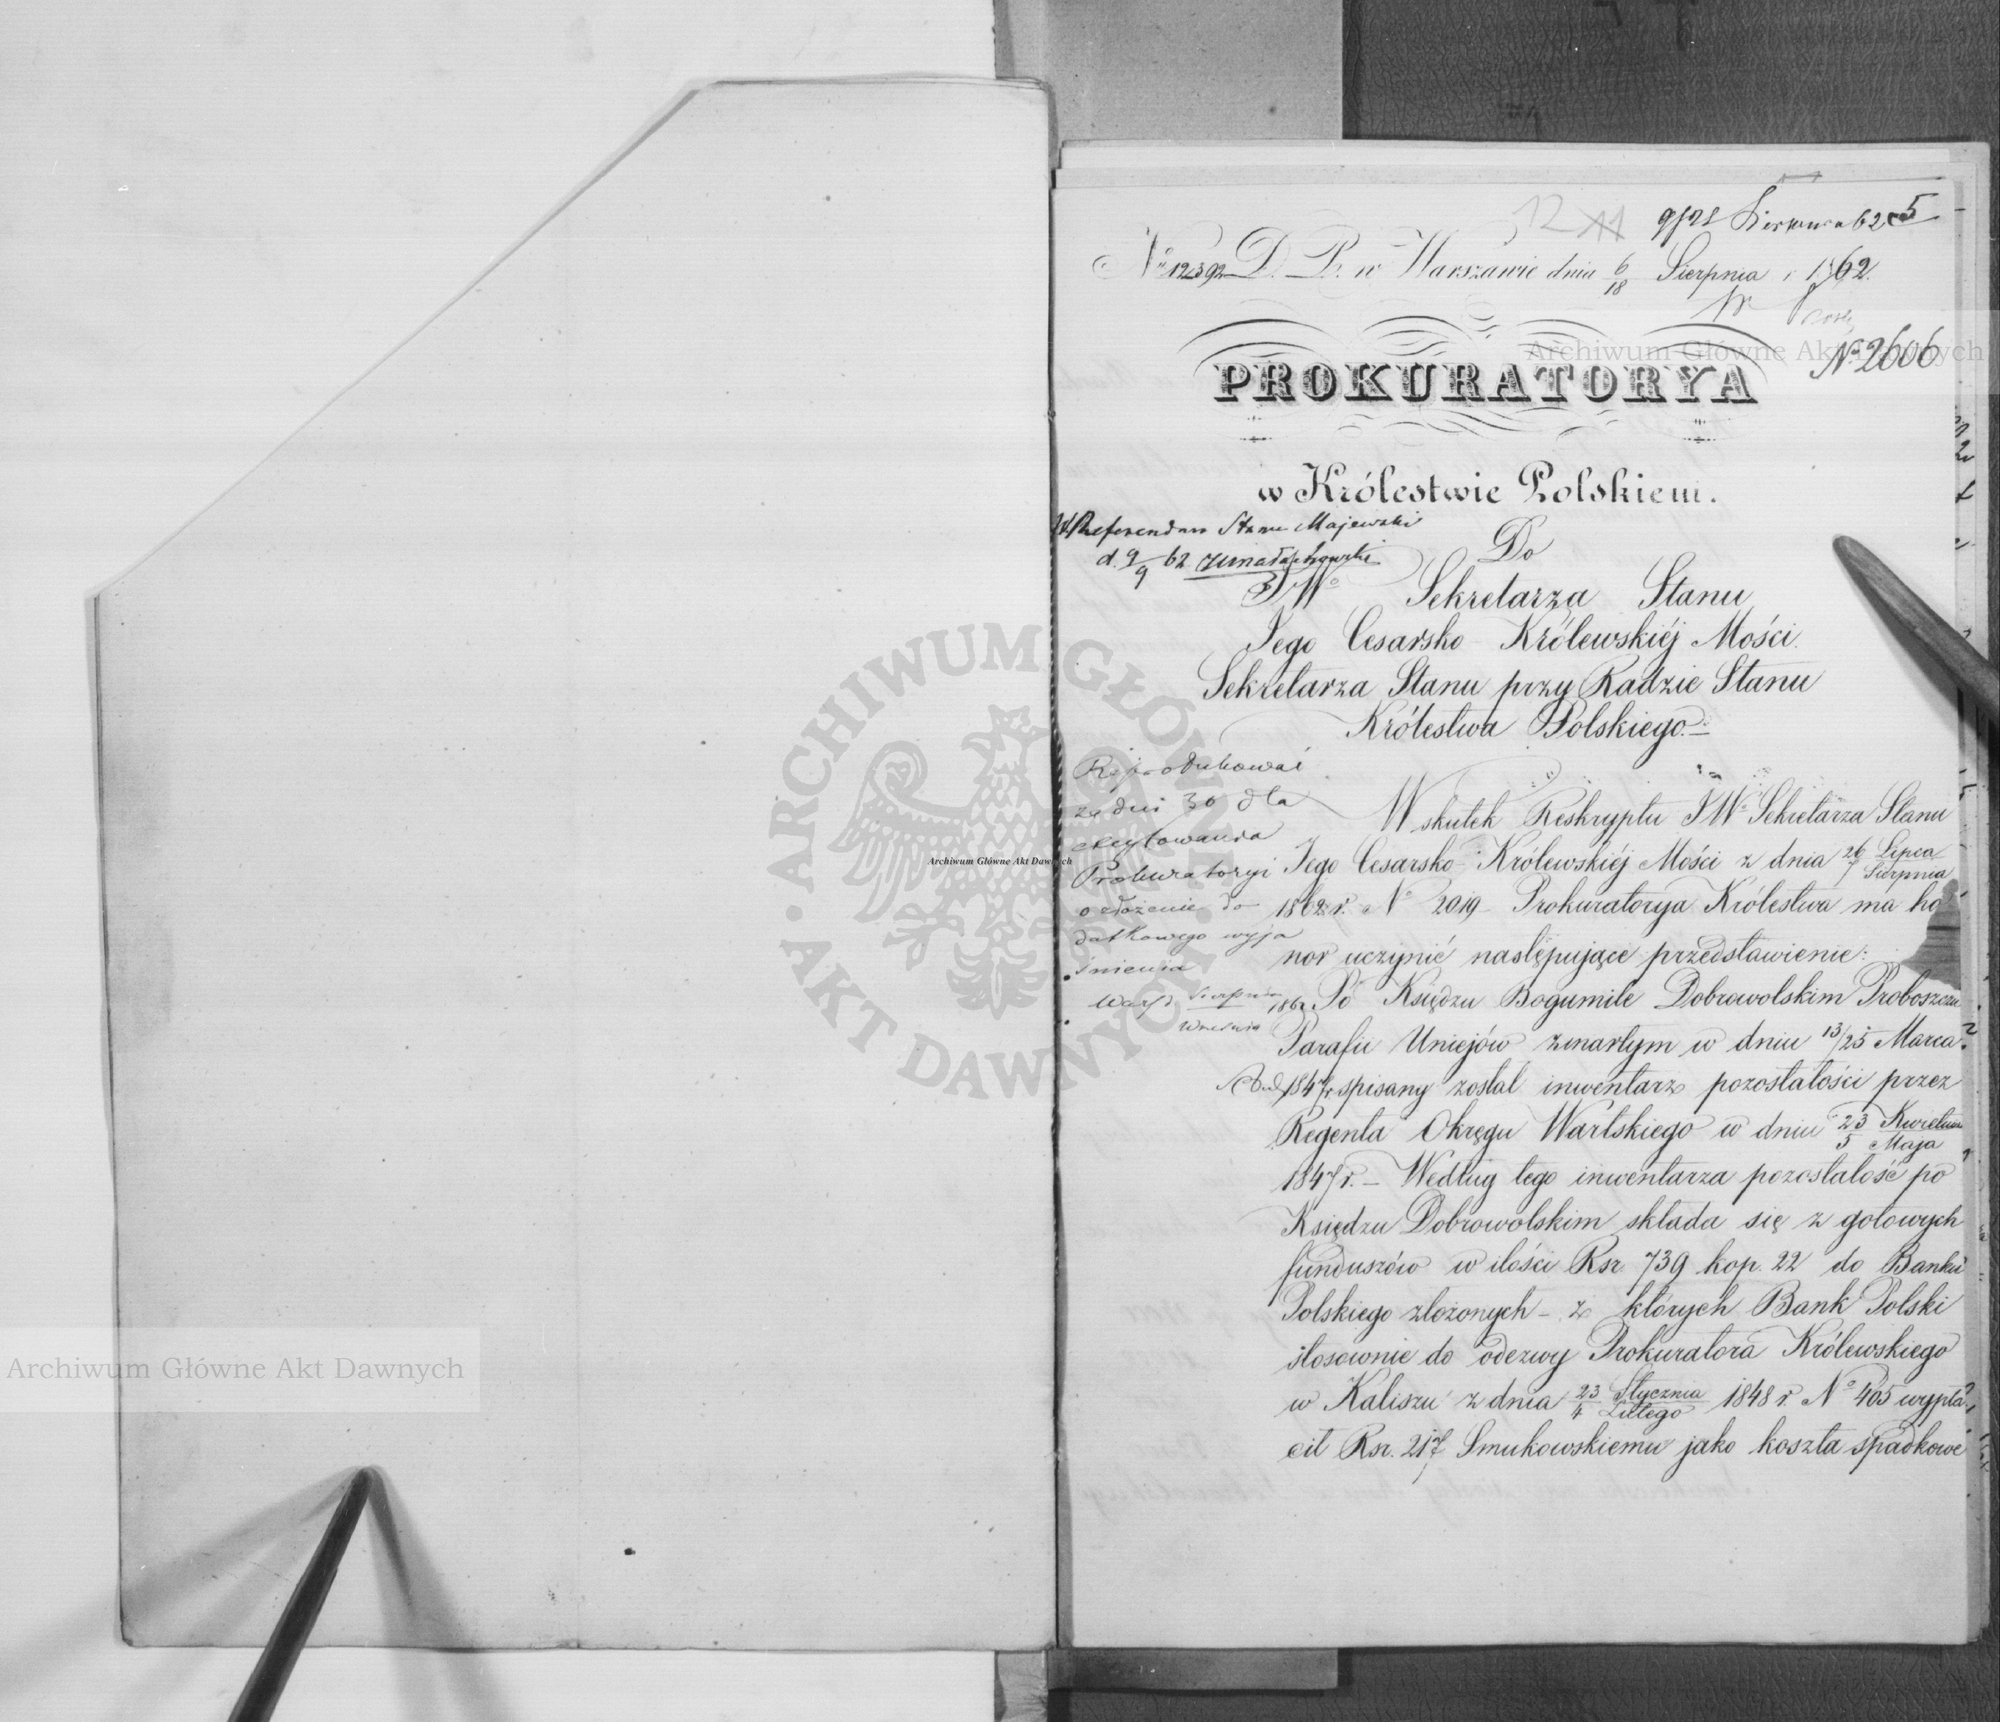 5
No 12392 D. P. w Warszawie dnia 6/18 Sierpnia 1862.
No 2606
PROKURATORYA
w Królestwie Polskiem.
Referendarz Stanu Majewski
d. 9/9 62
Do
JWo Sekretarza Stanu
Jego Cesarsko-Królewskiéj Mości
Sekretarza Stanu przy Radzie Stanu
Królestwa Polskiego.
Reprodukować
za dni 30 dla
excytowania
Prokuratoryi
o złożenie do
datkowego wyja
śnienia
Warsz. Sierpnia/Września 1862
W skutek Reskryptu JWo Sekretarza Stanu
Jego Cesarsko-Królewskiéj Mości z dnia 26 Lipca/7 Sierpnia
1862 r. No 2019 Prokuratorya Królestwa ma ho
nor uczynić następujące przedstawienie:
Po Księdzu Bogumile Dobrowolskim Proboszczu
Parafii Uniejów zmarłym w dniu 13/25 Marca
1847 r. spisany został inwentarz pozostałości przez
Regenta Okręgu Wartskiego w dniu 23 Kwietnia/5 Maja
1847 r. – Według tego inwentarza pozostałość po
Księdzu Dobrowolskim składa się z gotowych
funduszów w ilości Rsr. 739 kop. 22 do Banku
Polskiego złożonych – z których Bank Polski
stosownie do odezwy Prokuratora Królewskiego
w Kaliszu z dnia 23 Stycznia/4 Lutego 1848 r. No 405 wypła
cił Rsr. 217 Smukowskiemu jako koszta spadkowe
Archiwum Główne Akt Dawnych
Archiwum Główne Akt Dawnych
Archiwum Główne Akt Dawnych
ARCHIWUM GŁÓWNE AKT DAWNYCH